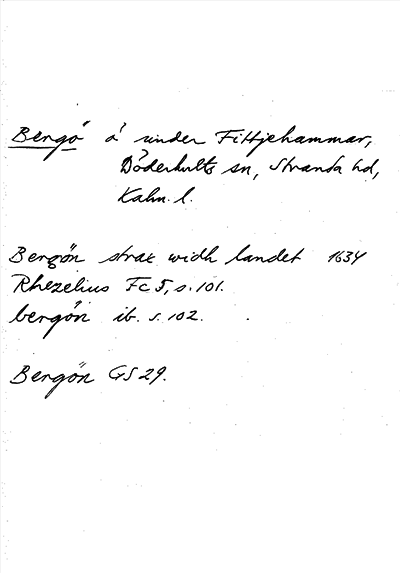 Bergö ö under Fittjehammar,
Döderhults sn, Stranda hd,
Kalm. l.
Bergön strax widh landet 1634
Rhezelius Fc 5, s. 101.
bergön ib. s. 102.
Bergön GS 29.